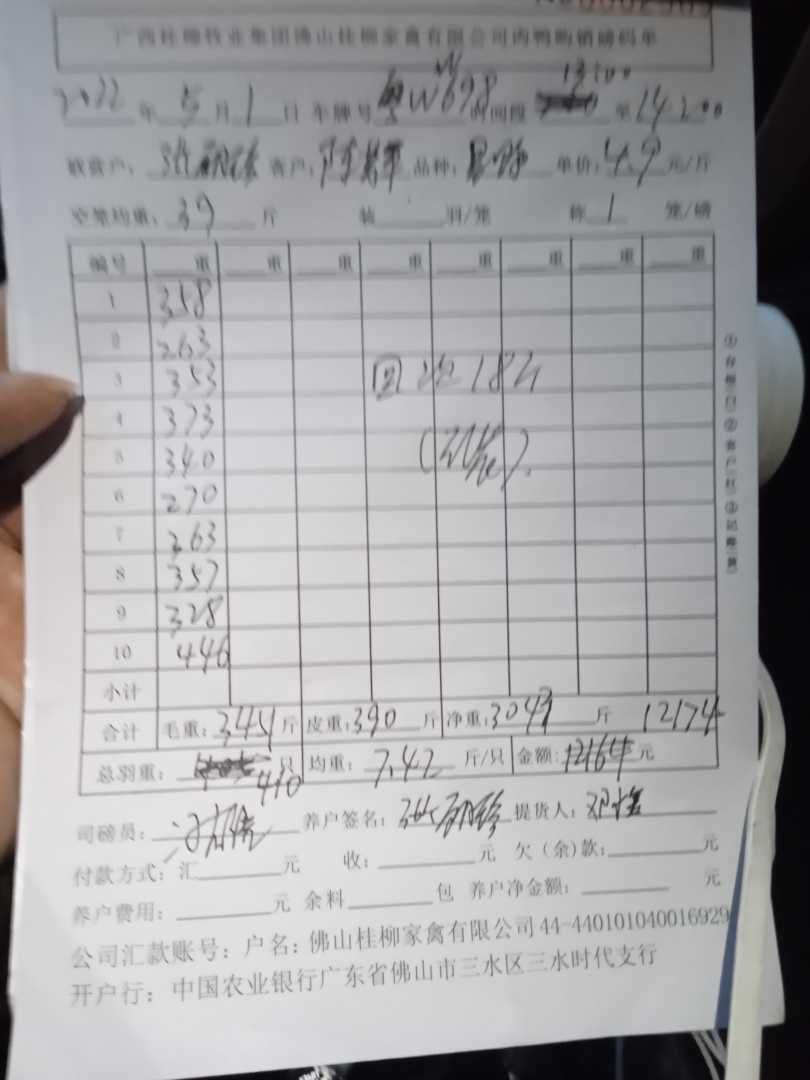 广西桂柳牧业集团佛山桂柳家禽有限公司肉鸭购销磅码单
2022 年 5 月 1 日 车牌号 粤W W698 时间段 13:00 至 14:00
客户: 品种: 单价: 4.9 元/斤
空笼均重: 39 斤 装 羽/笼 称 1 笼/磅
编号 重 重 重 重 重 重 重 重
1 358
2 263
3 353 回 184
4 373
5 340
6 270
7 363
8 357
9 328
10 446
小计
合计 毛重: 3451 斤 皮重: 390 斤 净重: 3049 斤 12174
总羽重: 410 只 均重: 7.42 斤/只 金额: 12164 元
司磅员: 养户签名: 提货人:
付款方式: 汇 元 收: 元 欠(余)款: 元
养户费用: 元 余料 包 养户净金额: 元
公司汇款账号: 户名: 佛山桂柳家禽有限公司 44-440101040016929
开户行: 中国农业银行广东省佛山市三水区三水时代支行